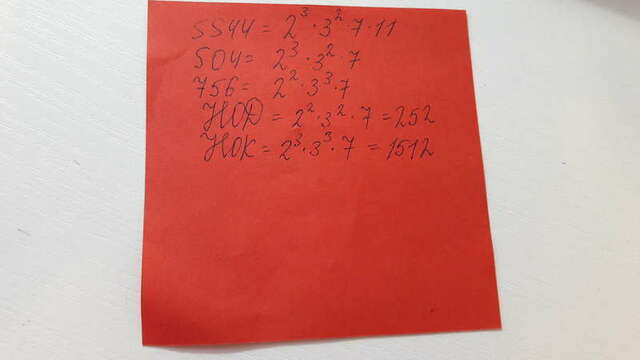 5544 = 2³ · 3² · 7 · 11
504 = 2³ · 3² · 7
756 = 2² · 3³ · 7
НОД = 2² · 3² · 7 = 252
НОК = 2³ · 3³ · 7 = 1512